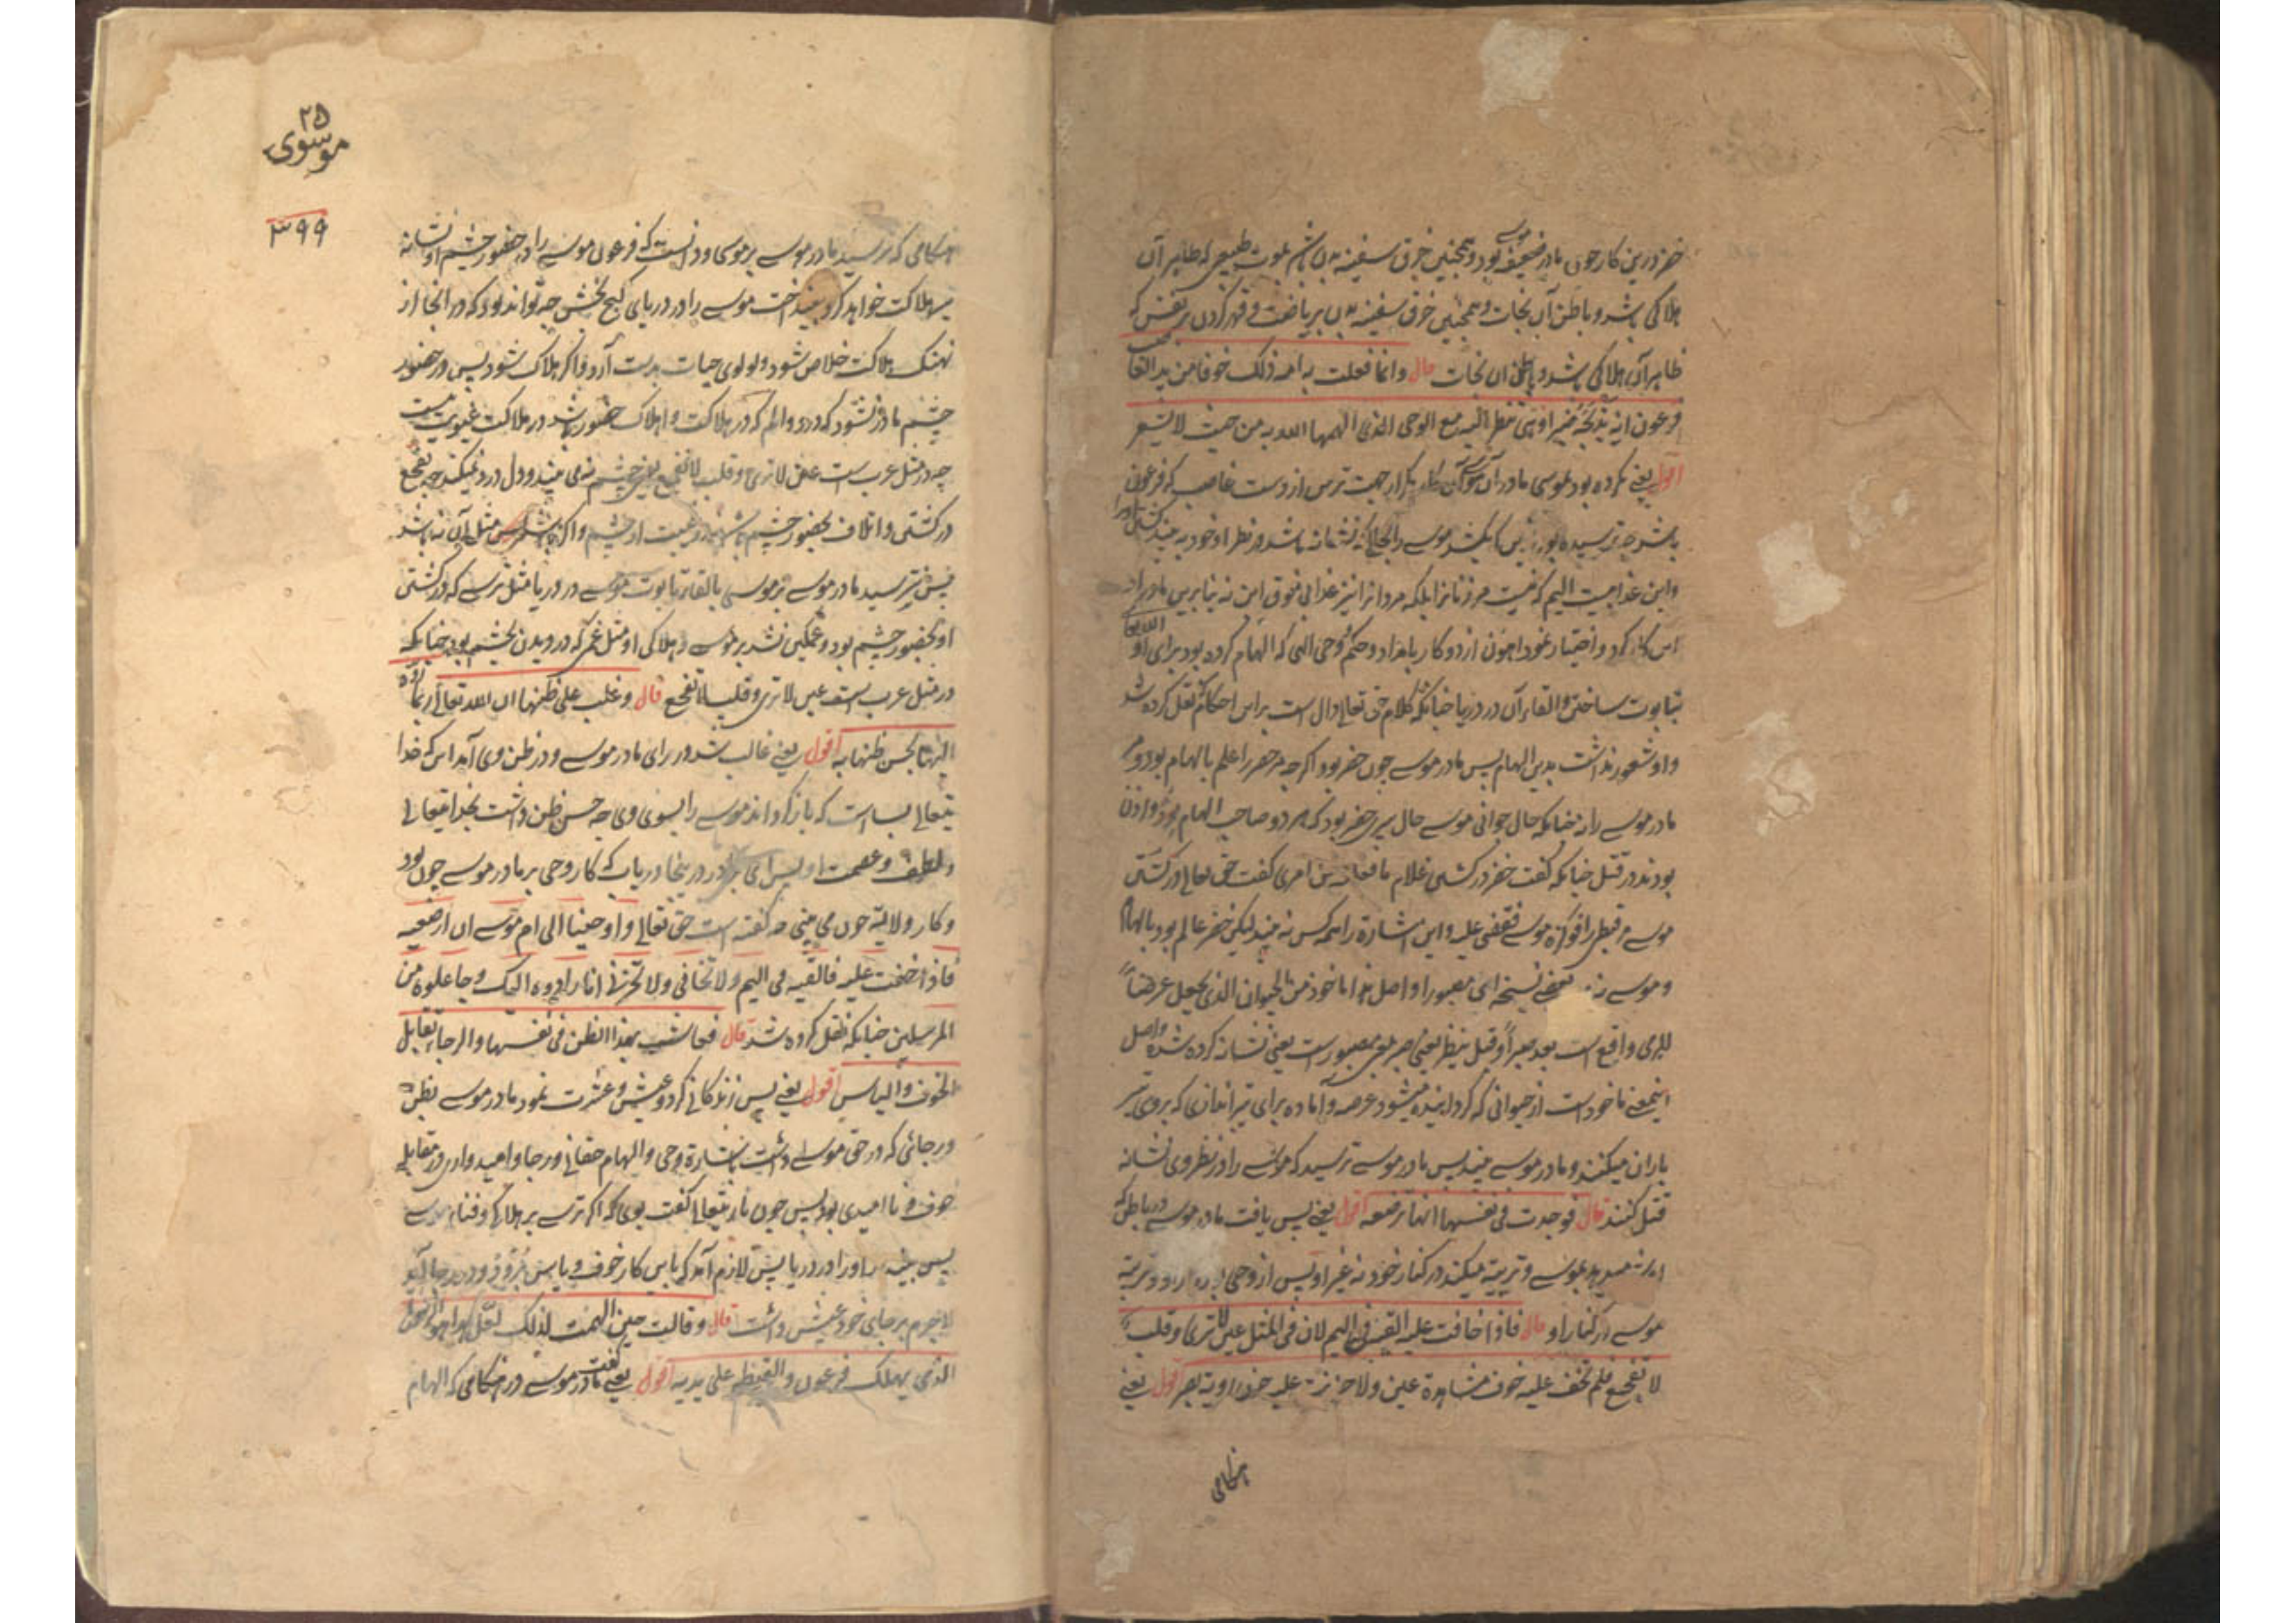 خضر درین کار چون مادر ضعیفه موسی بود و همچنین خرق سفینه بدن باشد بموت طبیعی که ظاهر آن
هلاکی باشد و باطن آن نجات و همچنین خرق سفینه بدن بریاضت و قهر کردن بر نفس که
ظاهر آن هلاکی باشد و باطن آن نجات قال وانما فعلت به امه ذلک خوفا من ید الغاصب
فرعون ان یذبحه صبرا و هی تنظر الیه مع الوحی الذی الهمها الله به من حیث لا تشعر
اقول یعنی کرده بود بموسی مادر آن موسی آن کار از جهت ترس از دست غاصب که فرعون
باشد چه ترسیده بود
و این عذابیست الیم که نیست مر زنانرا بلکه مردانرا نیز عذابی فوق این نه بنابرین مادر او را
این کار کرد و اختیار نمود اهون از دو کار بامداد و حکم وحی الهی که الهام کرده بود برای او الله تعا
بتابوت ساختن و القاء آن در دریا چنانکه کلام حق تعالی دال است براین احکام نقل کرده شد
و او شعور نداشت بدین الهام پس مادر موسی چون خضر بود اگرچه مر خضر را علم بالهام بود و مر
مادر موسی را نه چنانکه حال جوانی موسی حال پیری خضر بود که هر دو صاحب الهام بود و اذن
بودند در قتل چنانکه گفت خضر در کشتن غلام ما فعلته عن امری گفت حق تعالی در کشتن
موسی مر قبطی را فوکزه موسی فقضی علیه و این اشارة را همه کس نه بیند لیکن خضر عالم بود بالهام
و موسی نه
للرمی واقع است بعد صبراً و قبل تنظر یعنی صبر بمعنی مصبور است یعنی نشانه کرده شده و اصل
اینمعنی ماخوذ است از حیوانی که گردانیده میشود عرصه و آماده برای تیراندازی که بروی تیر
باران میکنند و مادر موسی میبیند پس مادر موسی ترسید که موسی را در نظر وی نشانه
قتل کنند قال فوجدت فی نفسها انها ترضعه اقول یعنی پس یافت مادر موسی در باطن که
او شیر میدهد بموسی و تربیة میکند در کنار خود نه غیر او پس از وحی
موسی در کنار او قال فاذا خافت علیه القیه فی الیم لان فی المثل عین لا تری و قلب
لا یفجع فلم تخف علیه خوف مشاهدة عین ولا حزنت علیه حزن رویة بصر اقول یعنی
هنگامی
۲۵
موسوی
۳۹۹
هنگامی که ترسید مادر موسی بر موسی و دانست که فرعون موسی را در حضور چشم او نشانه
هلاکت خواهد کرد بینداخت موسی را در دریای گنج بخش چه تواند بود که در انجا از
نهنگ هلاکت خلاص شود و لولوی حیات بدست آرد و اگر هلاک شود پس در حضور
چشم مادر نشود که درد و الم که در هلاکت و اهلاک حضور باشد در هلاکت غیبوبت نیست
چه در مثل عرب است عین لا تری و قلب لا تفجع یعنی چشم نه می بیند و دل درد نمیکند چه تفجع
در کشتی و اتلاف بحضور چشم باشد و در غیبت از چشم و اگر باشد پس مثل آن نه باشد
پس نترسید مادر موسی بر موسی بالقاء تابوت موسی در دریا مثل ترسی که در کشتی
او بحضور چشم بود و غمگین نشد بر موسی و هلاکی او مثل غمی که در دیدن بچشم بود چنانکه
در مثل عرب است عین لا تری و قلب لا تفجع قال و غلب علی ظنها ان الله تعالی ربما رده
الیها بحسن ظنها به اقول یعنی غالب شد در رای مادر موسی و در ظن وی آمد این که خدا
یتعالی بسا است که باز گرداند موسی را بسوی وی چه حسن ظن داشت بخدایتعالی
و لطف و عصمت او پس ای برادر در ینجا دریاب که کار وحی بر مادر موسی چون بود
و کار ولایة چون می بینی چه گفته است حق تعالی و اوحینا الی ام موسی ان ارضعیه
فاذا خفت علیه فالقیه فی الیم ولا تخافی ولا تحزنی انا رادوه الیک وجاعلوه من
المرسلین چنانکه نقل کرده شد قال فعاشت بهذا الظن فی نفسها والرجاء یقابل
الخوف والیاس اقول یعنی پس زندگانی کرد و عیش و عشرت نمود مادر موسی بظن
و رجائی که در حق موسی داشت باشارة وحی و الهام حقانی و رجا و امیدواری در مقابله
خوف و ناامیدی بود پس چون باریتعالی گفت بوی که اگر ترسی بر هلاکی و فناء موسی
پس بینداز او را در دریا پس لازم آمد که باین کار خوف و یاس
لاجرم برجای خود عیش داشت قال و قالت حین الهمت لذلک لعل هذا هو الرسول
الذی یهلک فرعون والقبط علی یدیه اقول یعنی گفت مادر موسی در هنگامی که الهام